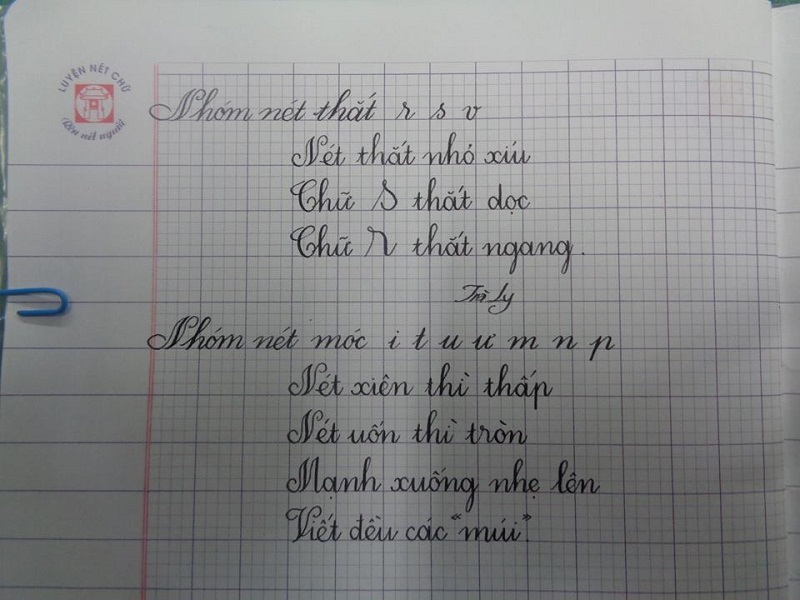 LUYỆN NÉT CHỮ
Rèn nết người
Nhóm nét thắt r s v
Nét thắt nhỏ xíu
Chữ S thắt dọc
Chữ R thắt ngang.
Trì Ly
Nhóm nét móc i t u ư m n p
Nét xiên thì thấp
Nét uốn thì tròn
Mạnh xuống nhẹ lên
Viết đều các "múi".